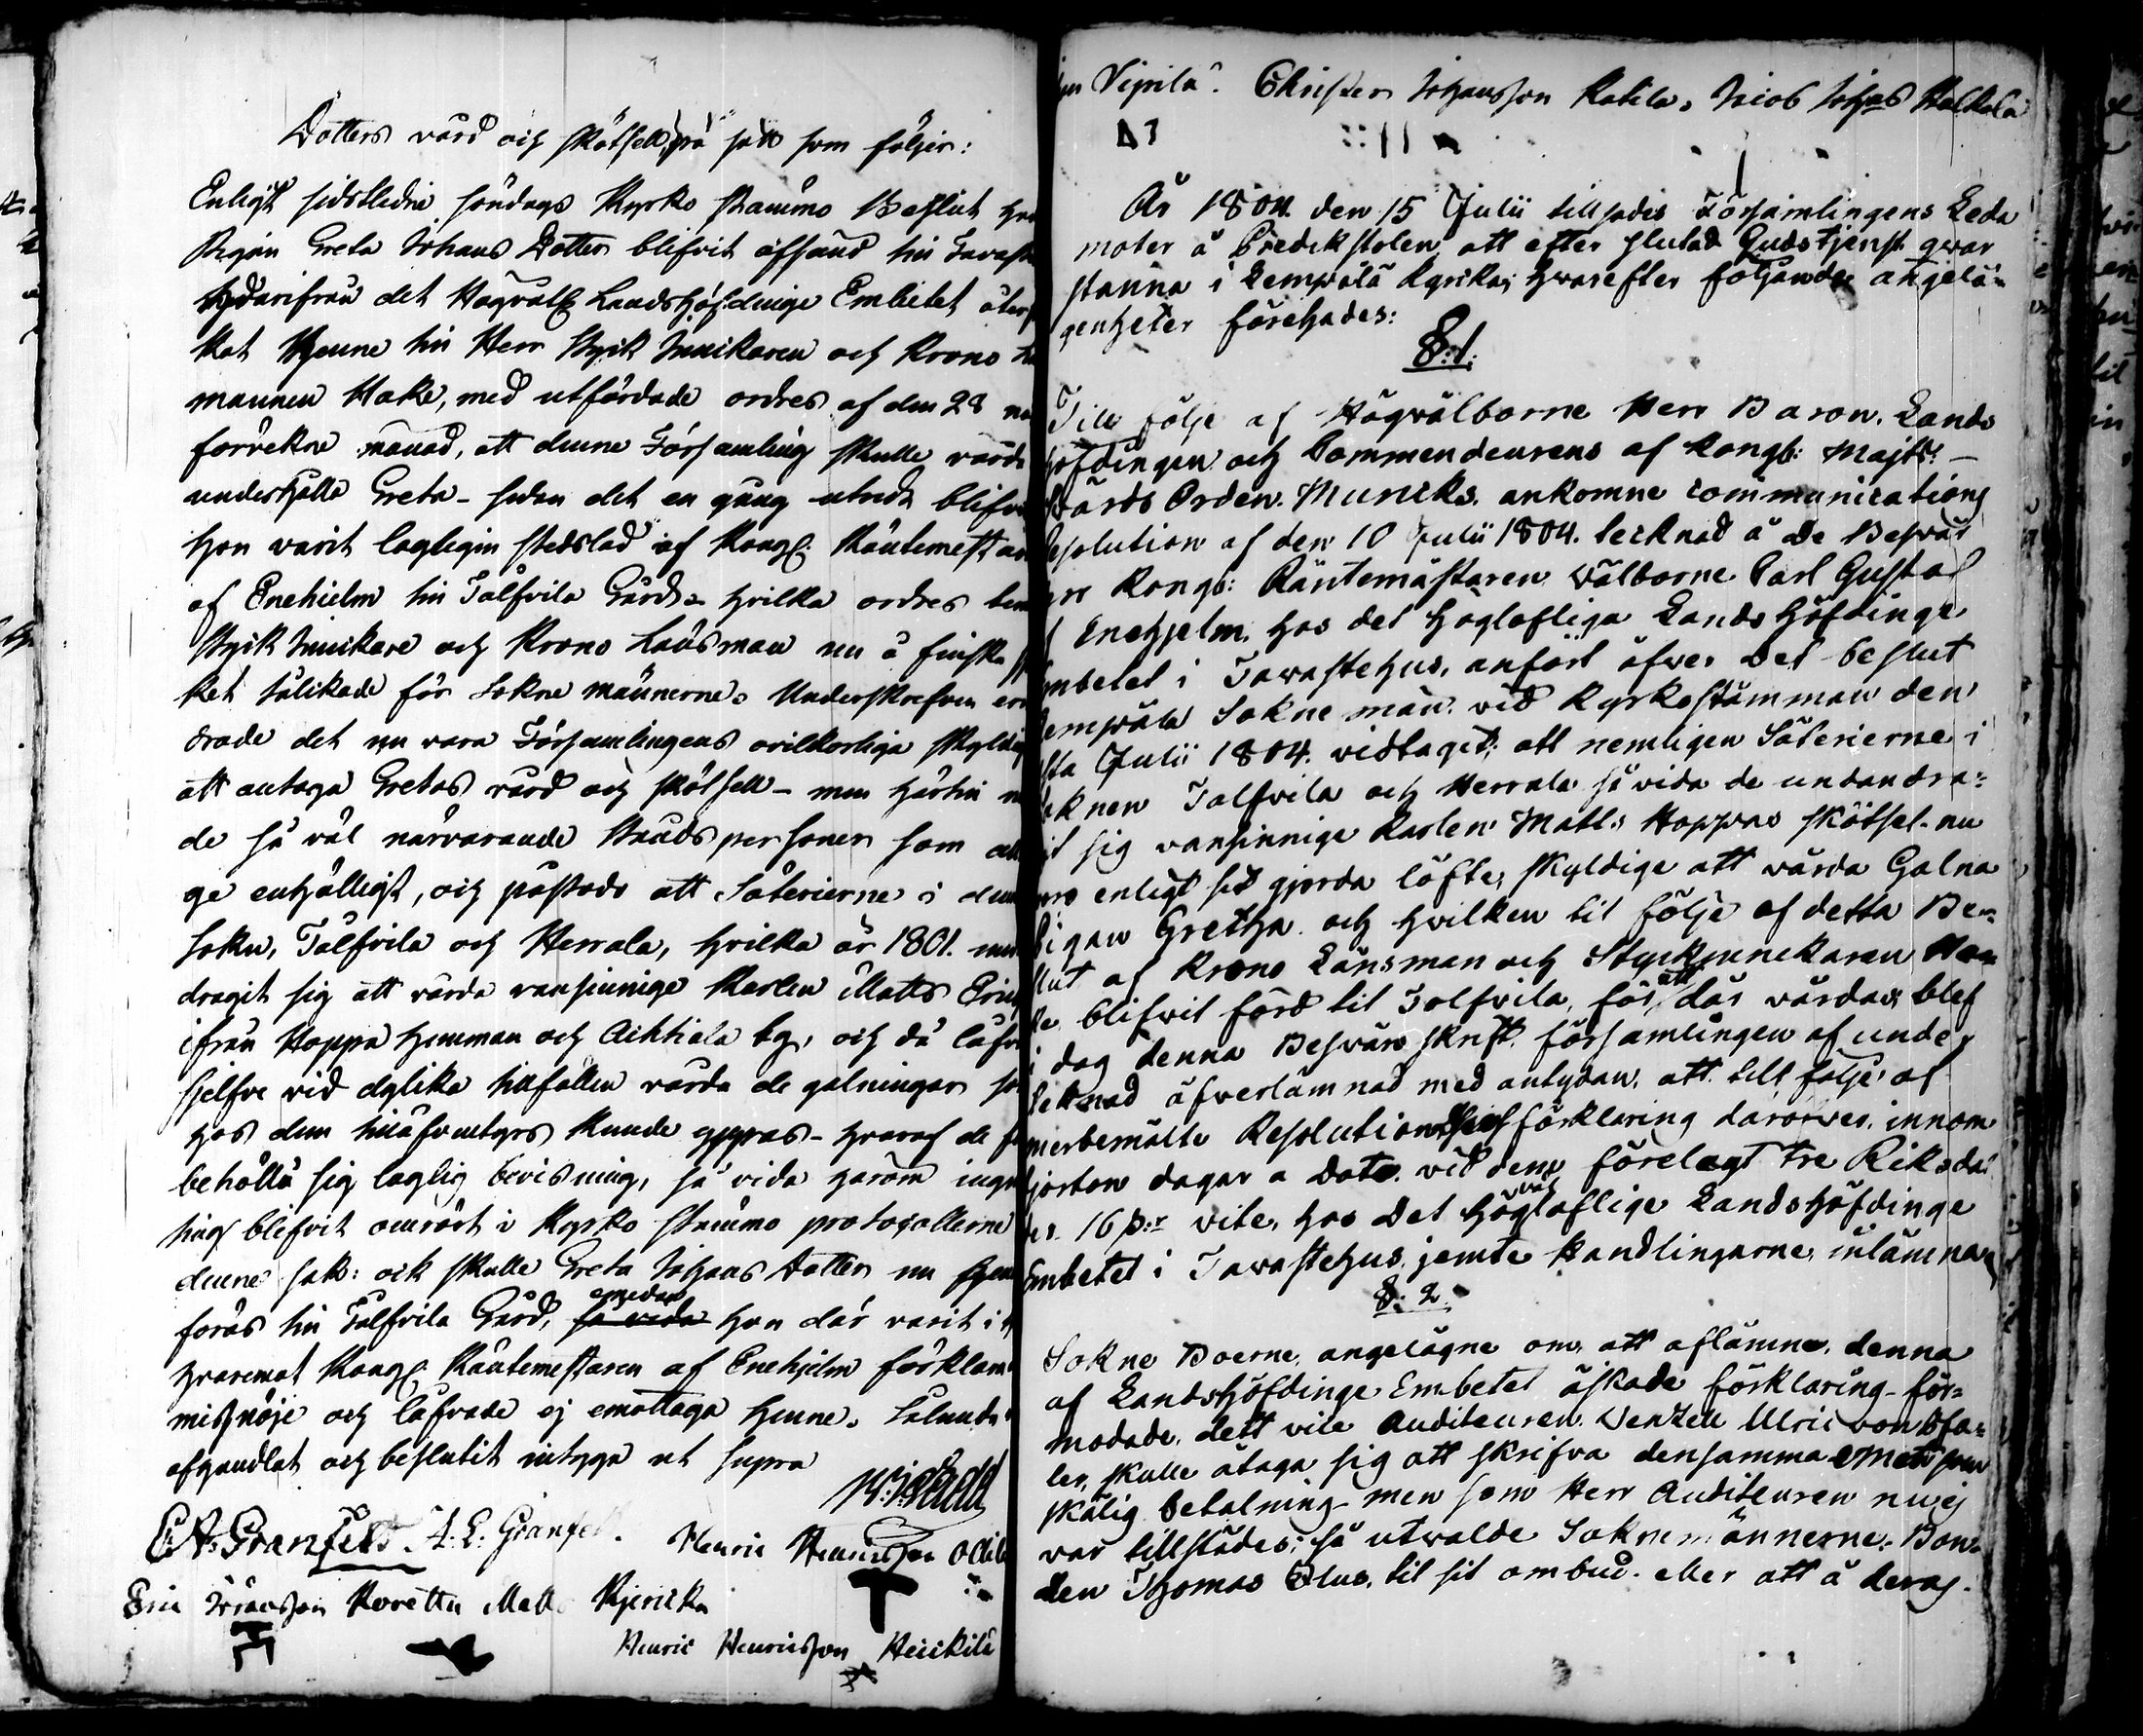 Dotters vård och skötsell, på sätt som följer:
Enligt sidstledne söndags Kyrko stämmo Beslut
Pigan Greta Johans Dotter blifvit afsänd till
hvdarifrån det Högvälb Landshöfdinge Embetet åter
kat Henne till Herr Styck Junckaren och Krono
mannen Hake, med utfärdade ordres af den 28
förvekne månad, att denne Församling skulle vårda
underhålla Greta – sedan det en gång utredt blifvit
hon varit lagligen stedslad af Kongl. Räntemestaren
af Enehielm till Tålfvila Gård – hvilka ordres
Styck Junckare och Krono Länsman nu å finska
ket tålikade för Sokne männerne. Underskrefven
drade det nu vara Församlingens ovilkorliga skyldig
att antaga Gretas vård och skötsell – men härtill
de så väl närvarande Ståndspersoner som
ge enhälligt, och påstods att Säterierne i denna
Sokn, Tålfvila och Herrala, hvilka år 1801.
dragit sig att vårda vansinnige Karlen Matts Erics
ifrån Hoppa hemman och Ackkiala by, och då låfvat
sjelfve vid dylika tillfällen vårda de galningar som
hos dem tilläfventyrs kunde yppas – hvaraf de
behålla sig laglig bevisning, så vida härom ingen
ting blifvit omrört i Kyrko stämmo protocollerne
denne sak: ock skulle Greta Johans Dotter nu
föras till Tålfvila Gård, så vida emedan hon där varit i
hvaremot Kongl. Räntemestaren af Enehjelm förklarade
missnöje och låfvade ej emottaga henne. Sålunda
afhandlat och beslutit intyga ut supra
C A: Granfelt A. E. Granfelt. Henric Henricsson
Eric Göransson Kovettu Matts Kjericka
Henric Henricsson Heickilä
Sipilä. Christer Johansson Katila, Jacob Johans Kalkala
År 1804. den 15 Julii tillsades Församlingens Leda
moter å Predikstolen att efter slutad Gudstjenst qvar
stanna i Lempälä Kyrika; hvarefter följande angelä-
genheter förehades:
§. 1.
Till följe af Högwälborne Herr Baron. Lands
höfdingen och Commendeurens af Kongl: Majts: –
Svärds Orden. Muncks. ankomne communications
Resolution af den 10 Julii 1804. tecknad å de Beswär
Kongl: Räntemästaren Wälborne Carl Gustaf
af Enehjelm, hos det höglofliga Lands Höfdinge
Embetet i Tawastehus, anfört öfwer det beslut
Lempälä Sokne män. vid Kyrkostämman den
sta Julii 1804. vidtaget; att nemligen Säterierne i
Soknen Talfvila och Herrala så vida de undandra-
git sig vansinnige Karlen Matts Hoppas skötsel. nu
woro enligt sit gjorda löfte, skyldige att wårda Galna
Pigan Gretha. och hvilken til följe af detta Be-
slut af Krono Länsman och Styckjunckaren Ha-
ke blifvit förd til Tolfvila, för att där vårdas; blef
i dag denna Beswärs skrift. församlingen af under
tecknad öfverlämnad med antydan, att till följe af
merbemälte Resolution förklaring däröfver. innom
fjorton dagar a Dato. vid dens förelagt tre Riksda-
ler. 16 s:r vite, hos det Höglofliga Landshöfdinge
Embetet i Tawastehus, jemte handlingarne, inlämnas
§. 2.
Sokne Boerne, angelägne om, att aflämna, denna
af Landshöfdinge Embetet äskade förklaring – för-
modade, dett vice Auditeuren. Wentzell Ulric von Sta-
ler, skulle åtaga sig att skrifva densamma emot
skälig betalning – men som Herr Auditeuren nu ej
var tillstädes; så utvalde Soknemännerne. Bon-
den Thomas Olus, til sit ombud. eller att å deras.